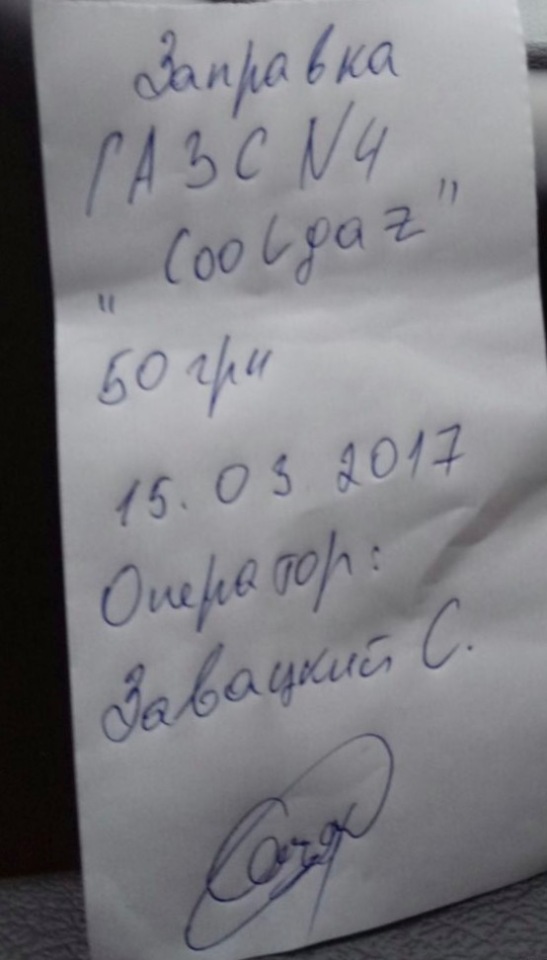 Заправка
ГАЗС N4
"Coolgaz"
50 грн
15.03.2017
Оператор:
Завацкий С.